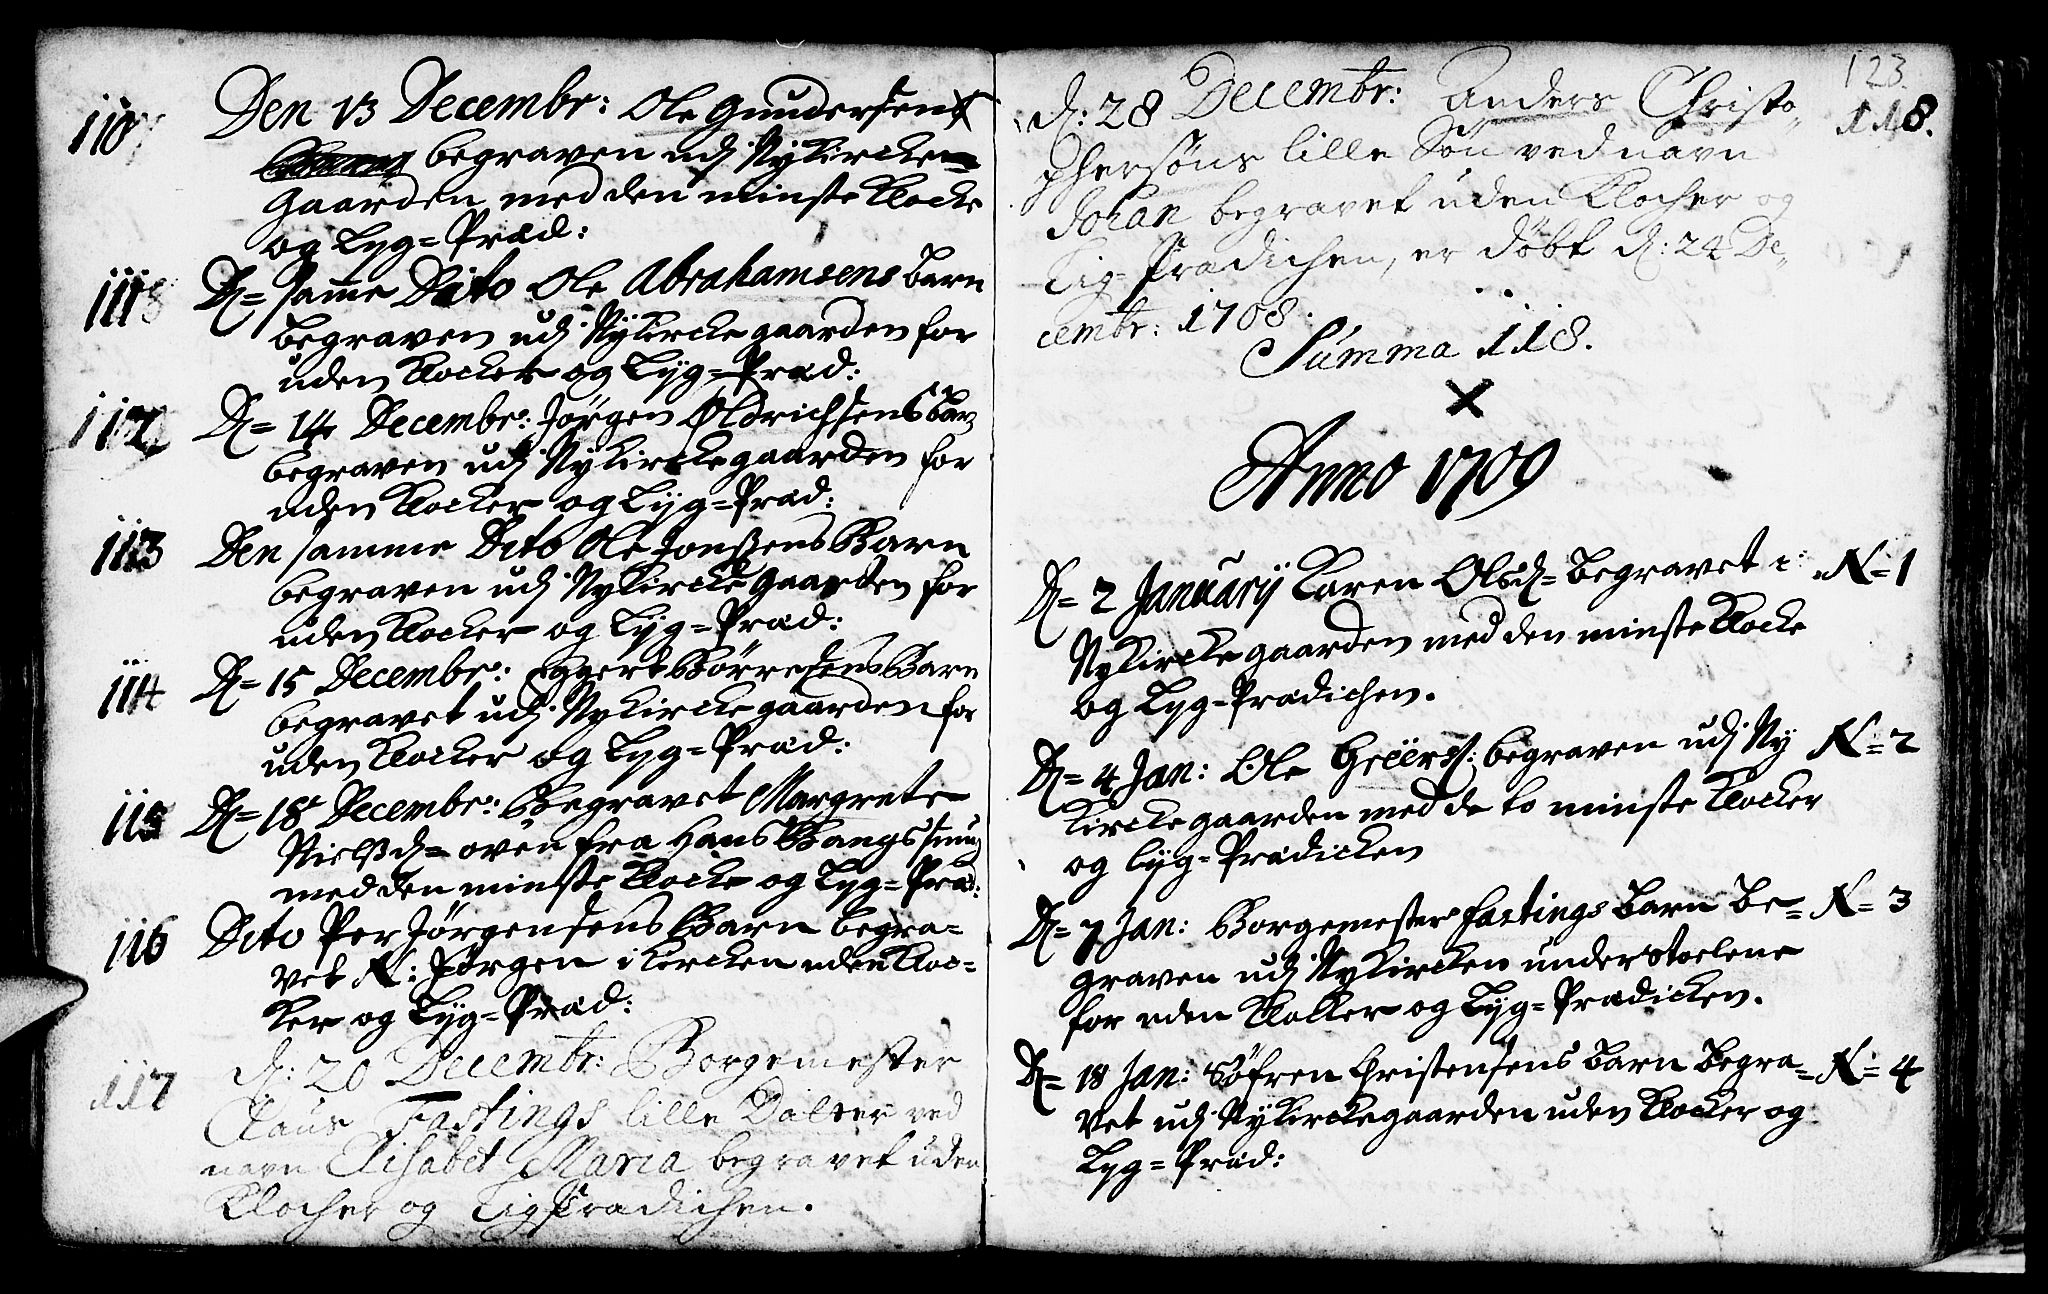 110
Den 13 Decembr: Ole Gundersen
begraven udj Nykircke=
Gaarden med den minste Klocke
og Lyg=Præd:
111
D= samme Dito Ole Abrahamsens barn
begraven udj Nykirckegaarden for
uden Klocker og Lyg=Præd:
112
D= 14 Decembr: Jørgen Oldrichsens Bar
begraven udj Nykirckegaarden for
uden Klocker og Lyg=Præd:
113
Den samme Dito Ole Jonssens Barn
begraven udj Nykircke Gaarden for
uden Klocker og Lyg=Præd:
114
D= 15 Decembr: Eggert Børresens Barn
begravet udj Nykirckegaarden for
uden Klocker og Lyg=Præd:
115
D= 18 Decembr: Begravet Margrete
Nielsd= oven fra Hans Bangs
med den minste Klocke og Lyg=Præd:
116
Dito Per Jørgensens Barn begra=
vet N: Jørgen i kircken uden Kloc=
ker og Lyg=Præd:
117
d: 20 Decembr: Borgemester
Claus Fastings lille Datter ved
navn Elisabet Maria begravet uden
Klocher og Ligprædichen.
123
d: 28 Decembr: Anders Christo,,
phersøns lille Søn ved navn
Johan begravet uden Klocher og
Lig=Prædichen, er døbt d: 24 De,,
cembr: 1708.
118.
Summa 118.
Anno 1709
D= 2 January Karen Olsd= begravet i N=1
Nykirckegaarden med den minste Klocke
og Lyg=Prædichen.
D= 4 Jan: Ole Greers: begraven udj Ny N=2
kirckegaarden med de to minste Klocker
og Lyg=Prædicken
D= 7 Jan: Borgemester Fastings barn Be= N=3
graven udj Nykircken under stoelene
for uden Klocker og Lyg=Prædicken.
D= 18 Jan: Søfren Christensens barn begra= N=4
vet udj Nykirckegaarden uden Klocker og
Lyg=Præd: